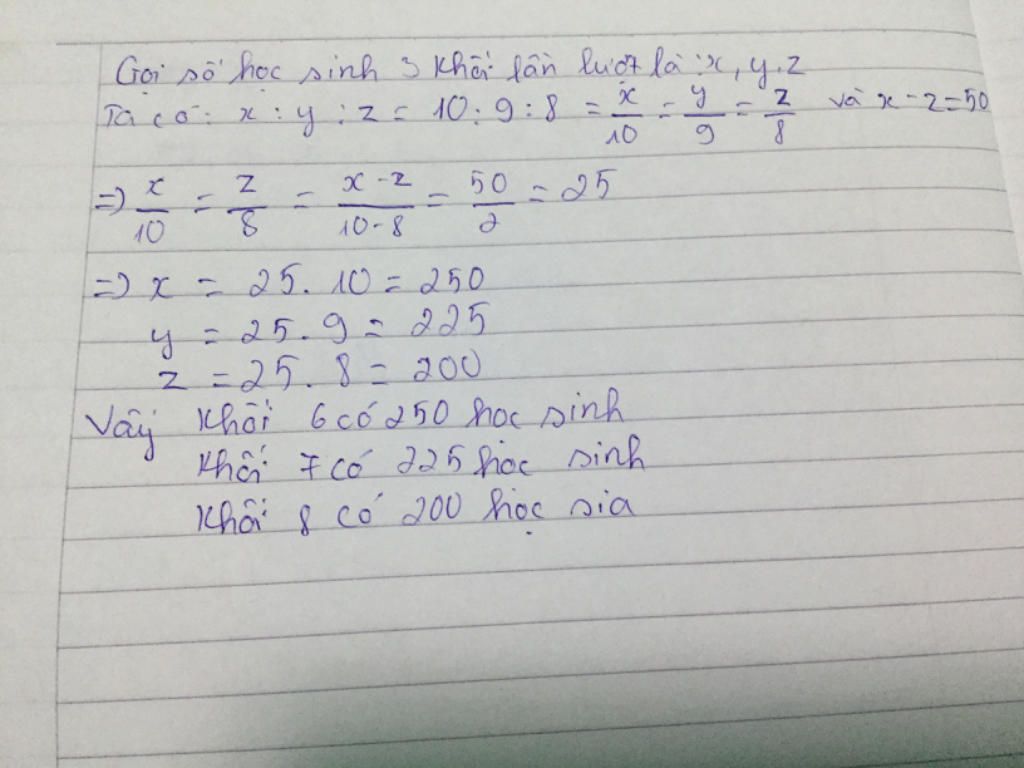 Gọi số học sinh 3 khối lần lượt là: x, y, z
Ta có: x : y : z = 10 : 9 : 8 = x/10 = y/9 = z/8 và x - z = 50
=> x/10 = z/8 = x - z/10 - 8 = 50/2 = 25
=> x = 25. 10 = 250
y = 25. 9 = 225
z = 25. 8 = 200
Vậy khối 6 có 250 học sinh
khối 7 có 225 học sinh
khối 8 có 200 học sia